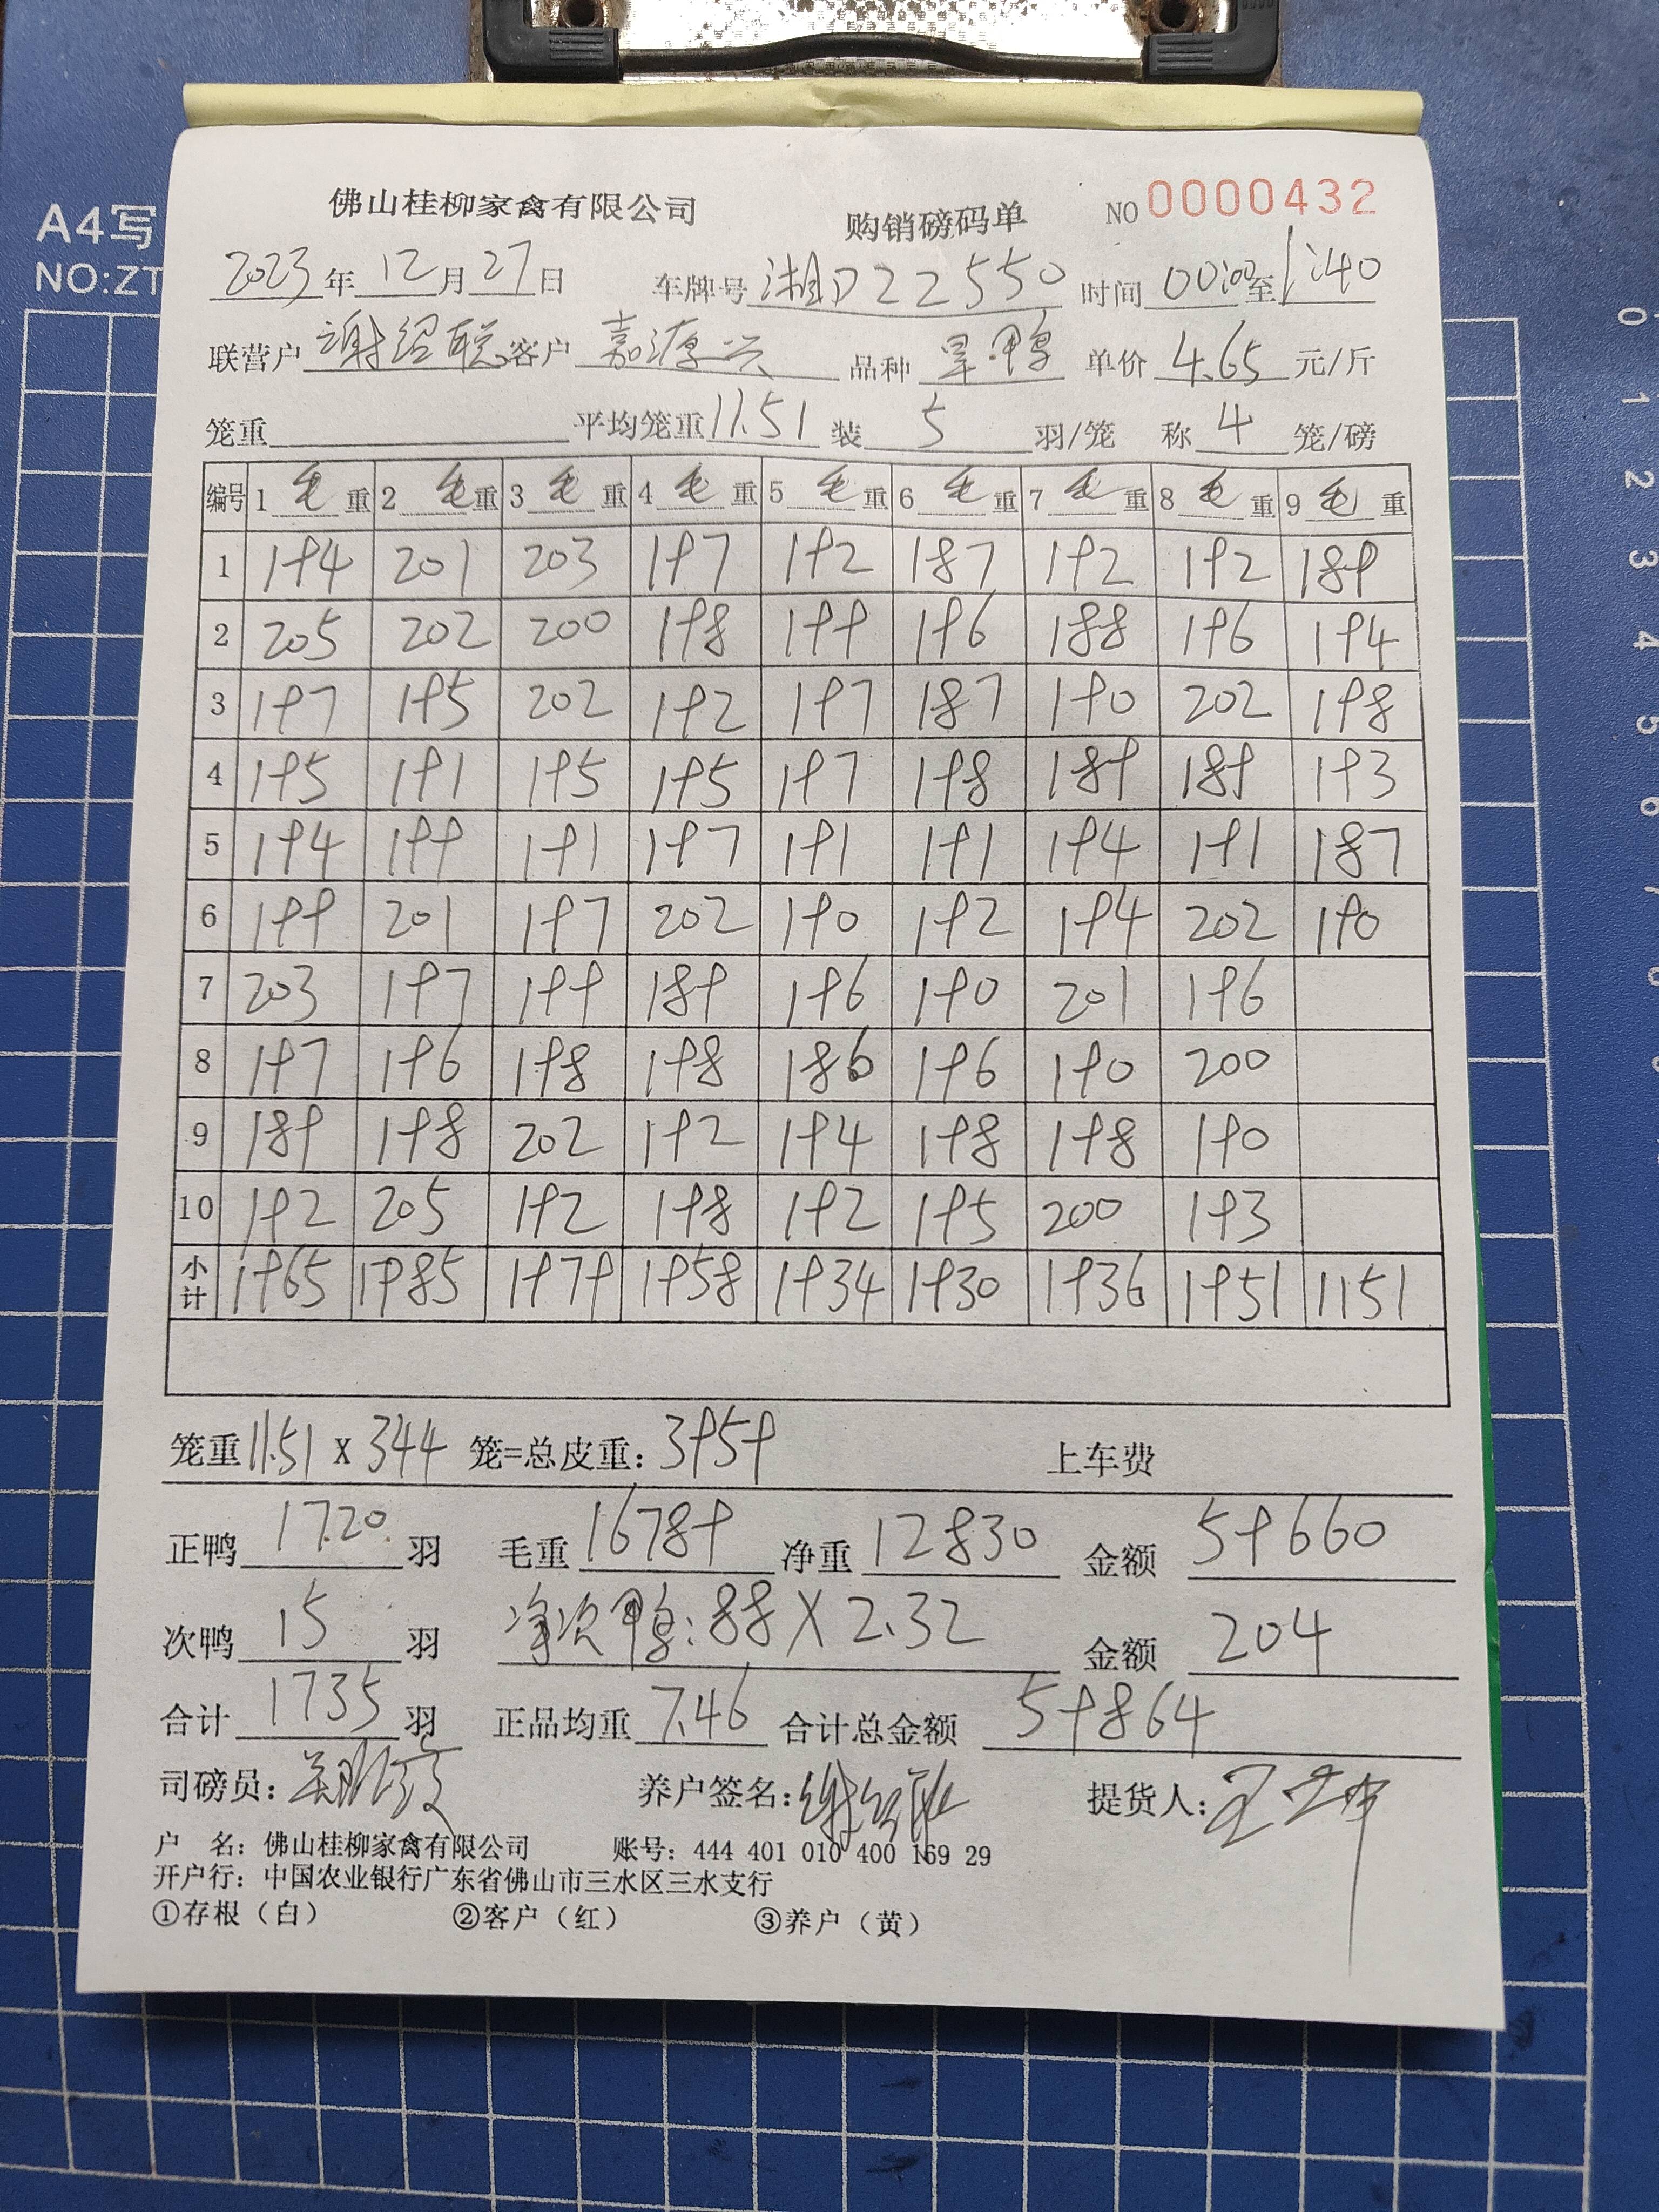 A4写
NO:ZT
佛山桂柳家禽有限公司 购销磅码单 NO 0000432
2023年12月27日 车牌号 湘D22550 时间 00:00至1:40
联营户 谢绍聪 客户 嘉源兴 品种 旱鸭 单价 4.65 元/斤
笼重 平均笼重 11.51 装 5 羽/笼 称 4 笼/磅
编号 1 毛重 2 毛重 3 毛重 4 毛重 5 毛重 6 毛重 7 毛重 8 毛重 9 毛重
1 194 201 203 197 192 187 192 192 189
2 205 202 200 198 199 196 188 196 194
3 197 195 202 192 197 187 190 202 198
4 195 191 195 195 197 198 189 189 193
5 194 199 191 197 191 191 194 191 187
6 199 201 197 202 190 192 194 202 190
7 203 197 199 189 196 190 201 196
8 197 196 198 198 186 196 190 200
9 189 198 202 192 194 198 198 190
10 192 205 192 198 192 195 200 193
小计 1965 1985 1979 1958 1934 1930 1936 1951 1151
笼重 11.51 X 344 笼=总皮重: 3959 上车费
正鸭 1720 羽 毛重 16789 净重 12830 金额 59660
次鸭 15 羽 净次鸭: 88 X 2.32 金额 204
合计 1735 羽 正品均重 7.46 合计总金额 59864
司磅员: 养户签名: 提货人:
户 名: 佛山桂柳家禽有限公司 账号: 444 401 010 400 169 29
开户行: 中国农业银行广东省佛山市三水区三水支行
①存根（白） ②客户（红） ③养户（黄）
0
1
2
3
4
5
6
7